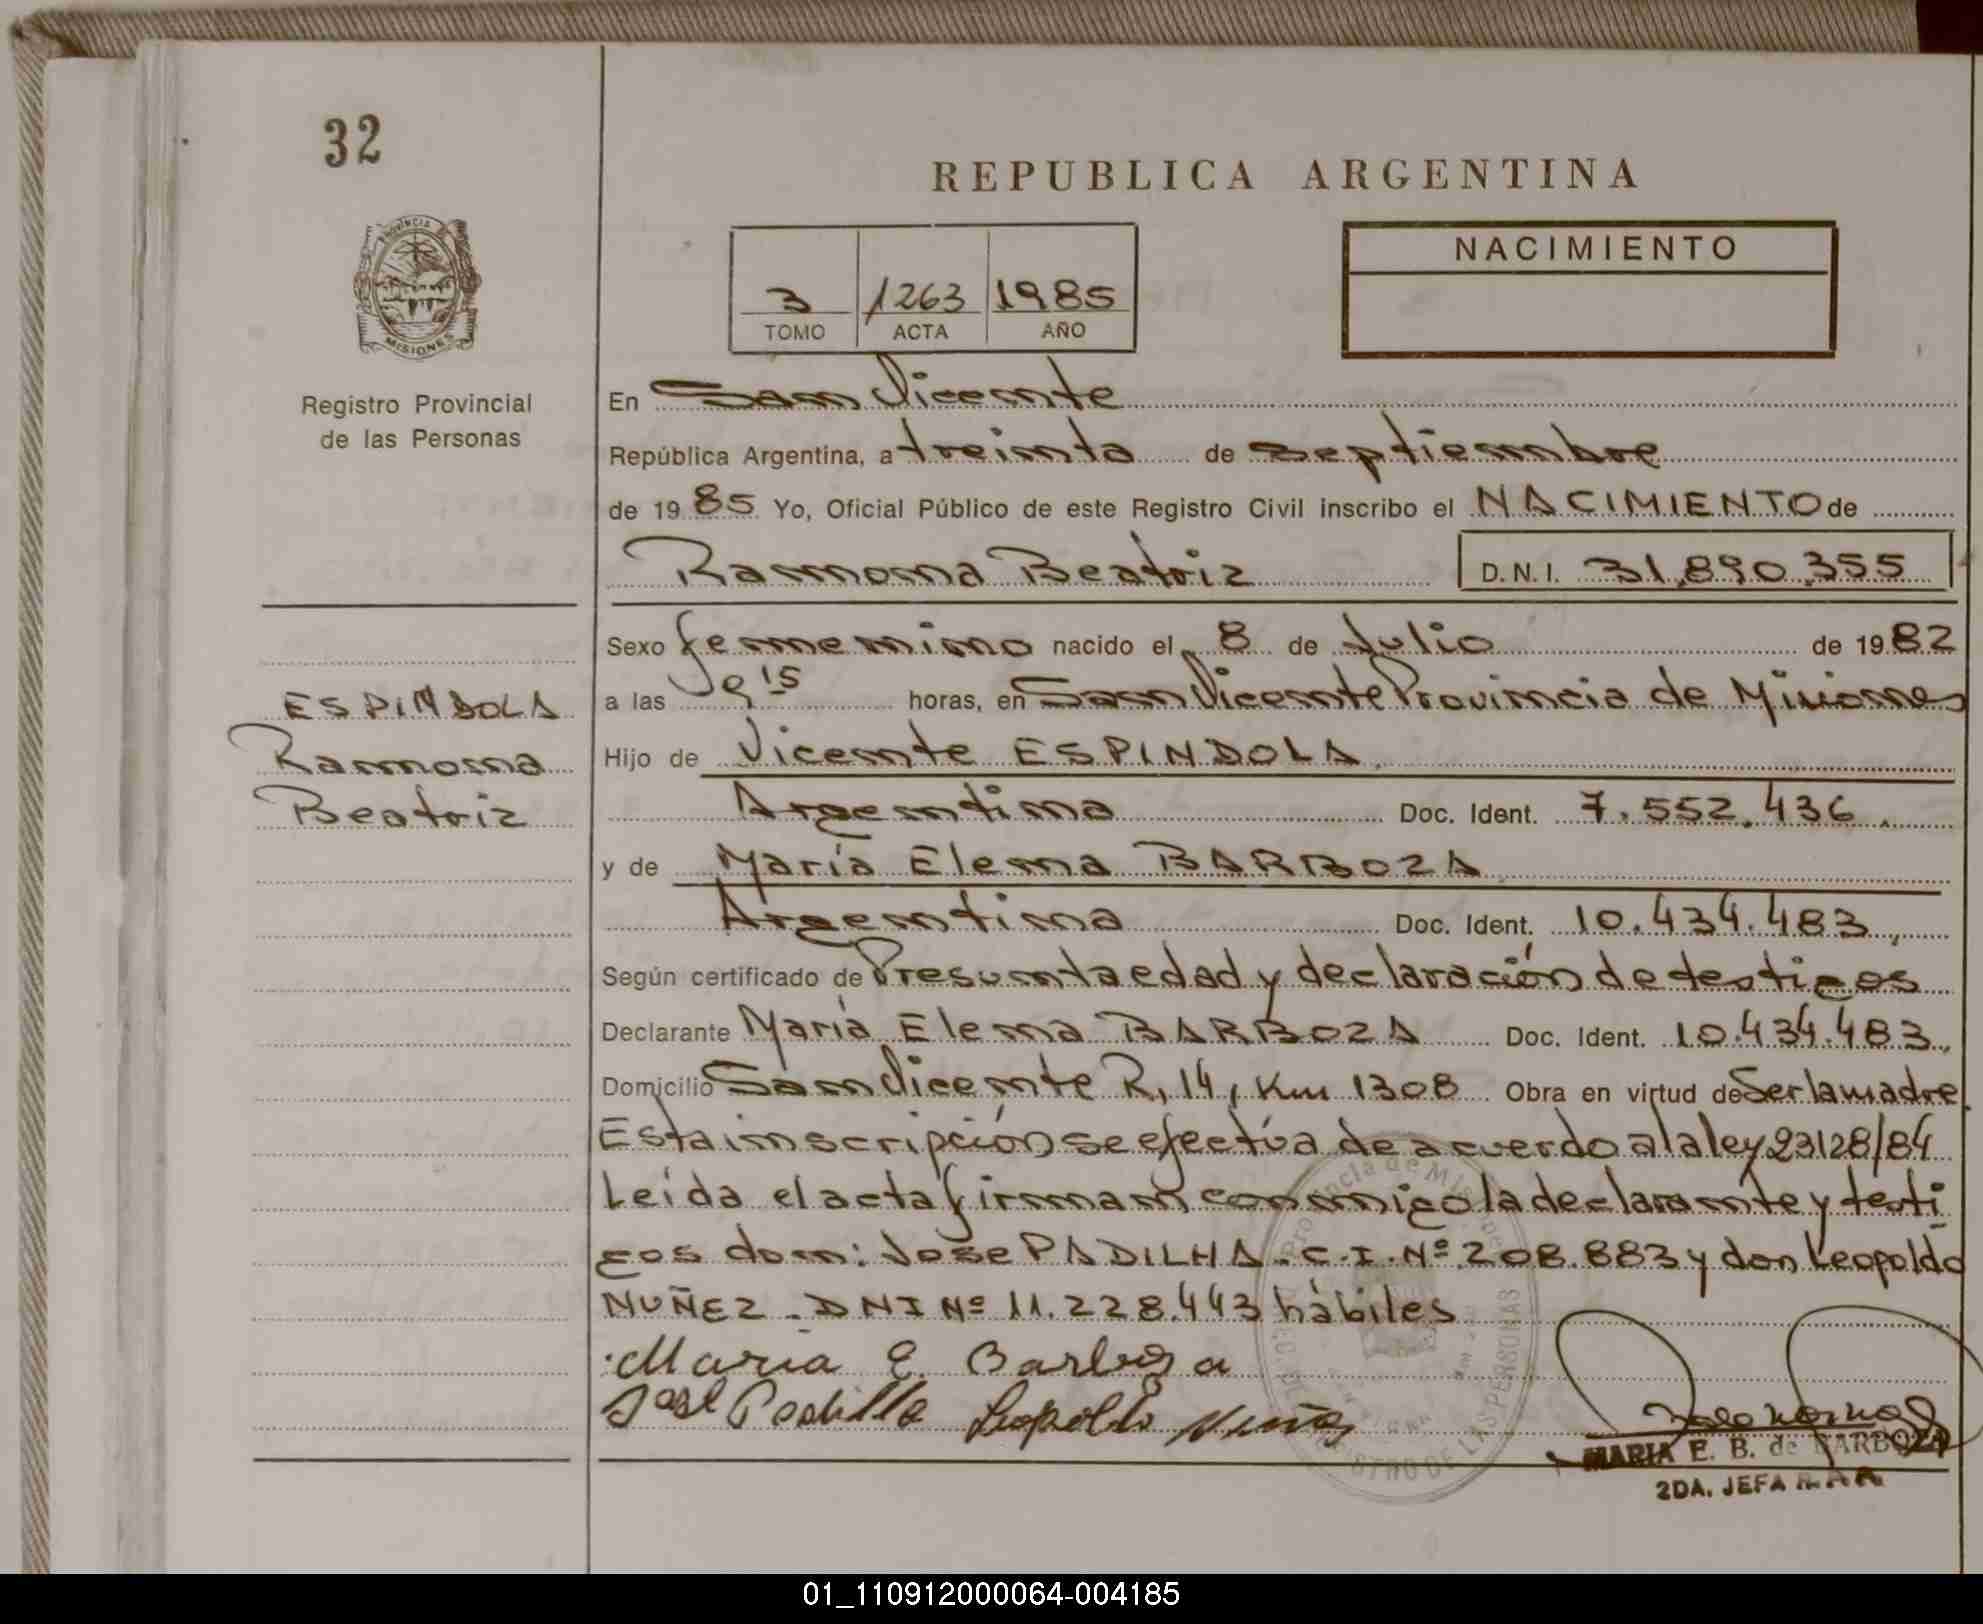 32
REPUBLICA ARGENTINA
PROVINCIA
MISIONES
Registro Provincial
de las Personas
3 1263 1985
TOMO ACTA AÑO
NACIMIENTO
En San Vicente
República Argentina, a treinta de septiembre
de 1985 Yo, Oficial Público de este Registro Civil inscribo el NACIMIENTO de
Ramona Beatriz D.N.I. 31.890.355
Sexo femenino nacido el 8 de Julio de 1982
a las 9 15 horas, en San Vicente Provincia de Misiones
ESPINDOLA
Ramona
Beatriz
Hijo de Vicente ESPINDOLA
Argentina Doc. Ident. 7.552.436
y de María Elena BARBOZA
Argentina Doc. Ident. 10.434.483
Según certificado de Presunta edad y declaración de testigos
Declarante María Elena BARBOZA Doc. Ident. 10.434.483
Domicilio San Vicente R, 14, Km 1308 Obra en virtud de Ser la madre
Esta inscripción se efectúa de acuerdo a la ley 23128/84
Leída el acta firman conmigo la declarante y testi
gos don: Jose PADILHA. C.I. Nº 208.883 y don Leopoldo
NUÑEZ - DNI Nº 11.228.443 hábiles
Maria E. Barboza
José Padilla Leopoldo Nuñez
MARIA E. B. de BARBOZA
2DA. JEFA
01_110912000064-004185